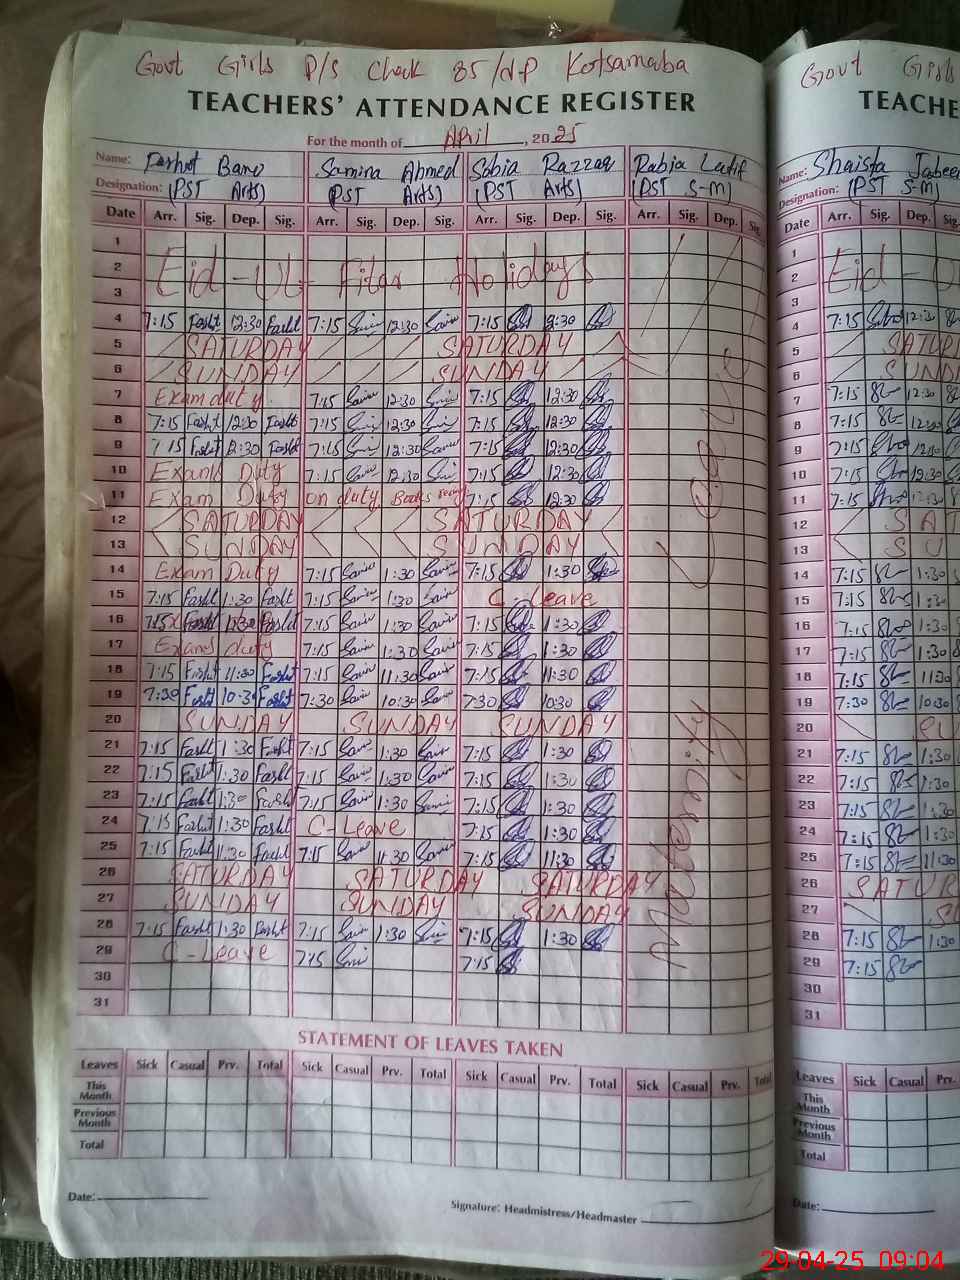 Govt Girls P/S Chack 85/N-P Kotsamaba
TEACHERS' ATTENDANCE REGISTER
For the month of April, 2025
Name: Farhat Bano Samina Ahmed Sobia Razzaq Rabia Latif
Designation: (PST Arts) (PST Arts) (PST Arts) (PST S-M)
Date Arr. Sig. Dep. Sig. Arr. Sig. Dep. Sig. Arr. Sig. Dep. Sig. Arr. Sig. Dep. Sig.
1
2 Eid-UL-Fitar Holidays
3
4 7:15 Farht 12:30 Farht 7:15 12:30 7:15 30
5 SATURDAY SATURDAY
6 SUNDAY SUNDAY
7 Exam duty 7:15 12:30 7:15 12:30
8 7:15 Farht 12:30 Farht 7:15 12:30 7:15 12:30
9 7:15 Farht 12:30 Farht 7:15 12:30 7:15 12:30
10 Exam Duty 7:15 12:30 7:15 12:30
11 Exam Duty on duty Books 7:15 12:30
12 SATURDAY SATURDAY
13 SUNDAY SUNDAY
14 Exam Duty 7:15 1:30 7:15 1:30
15 7:15 Farht 1:30 Farht 7:15 1:30 C-Leave
16 7:15 Farht 1:30 Farht 7:15 1:30 7:15 1:30
17 Exam duty 7:15 1:30 7:15 1:30
18 7:15 Farht 11:30 Farht 7:15 11:30 7:15 11:30
19 7:30 Farht 10:30 Farht 7:30 10:30 7:30 10:30
20 SUNDAY SUNDAY SUNDAY
21 7:15 Farht 1:30 Farht 7:15 1:30 7:15 1:30
22 7:15 Farht 1:30 Farht 7:15 1:30 7:15 1:30
23 7:15 Farht 1:30 Farht 7:15 1:30 7:15 1:30
24 7:15 Farht 1:30 Farht C-Leave 7:15 1:30
25 7:15 Farht 11:30 Farht 7:15 11:30 7:15 11:30
26 SATURDAY SATURDAY SATURDAY
27 SUNDAY SUNDAY SUNDAY
28 7:15 Farht 1:30 Farht 7:15 1:30 7:15 1:30
29 C-Leave 7:15 7:15
30
31
Maternity Leave
STATEMENT OF LEAVES TAKEN
Leaves Sick Casual Prv. Total Sick Casual Prv. Total Sick Casual Prv. Total Sick Casual Prv. Total
This Month
Previous Month
Total
Date:
Signature: Headmistress/Headmaster
Govt Girls
TEACHE
Name: Shaista Jabeen
Designation: (PST S-M)
Date Arr. Sig. Dep.
1
2 Eid-U
3
4 7:15 12:3
5 SATUR
6 SUND
7 7:15 12:30
8 7:15
9 7:15
10 7:15 12:30
11 7:15
12 SAT
13 SU
14 7:15 1:30
15 7:15 1:30
16 7:15 1:30
17 7:15 1:30
18 7:15 11:30
19 7:30 10:30
20 SU
21 7:15 1:30
22 7:15 1:30
23 7:15 1:30
24 7:15 1:30
25 7:15 11:30
26 SATUR
27 S
28 7:15 1:30
29 7:15
30
31
Leaves Sick Casual Prv.
This Month
Previous Month
Total
Date:
29-04-25 09:04